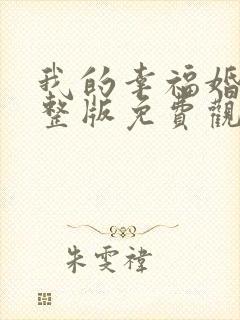 我的幸福婚
整版免費觀
朱雯禕